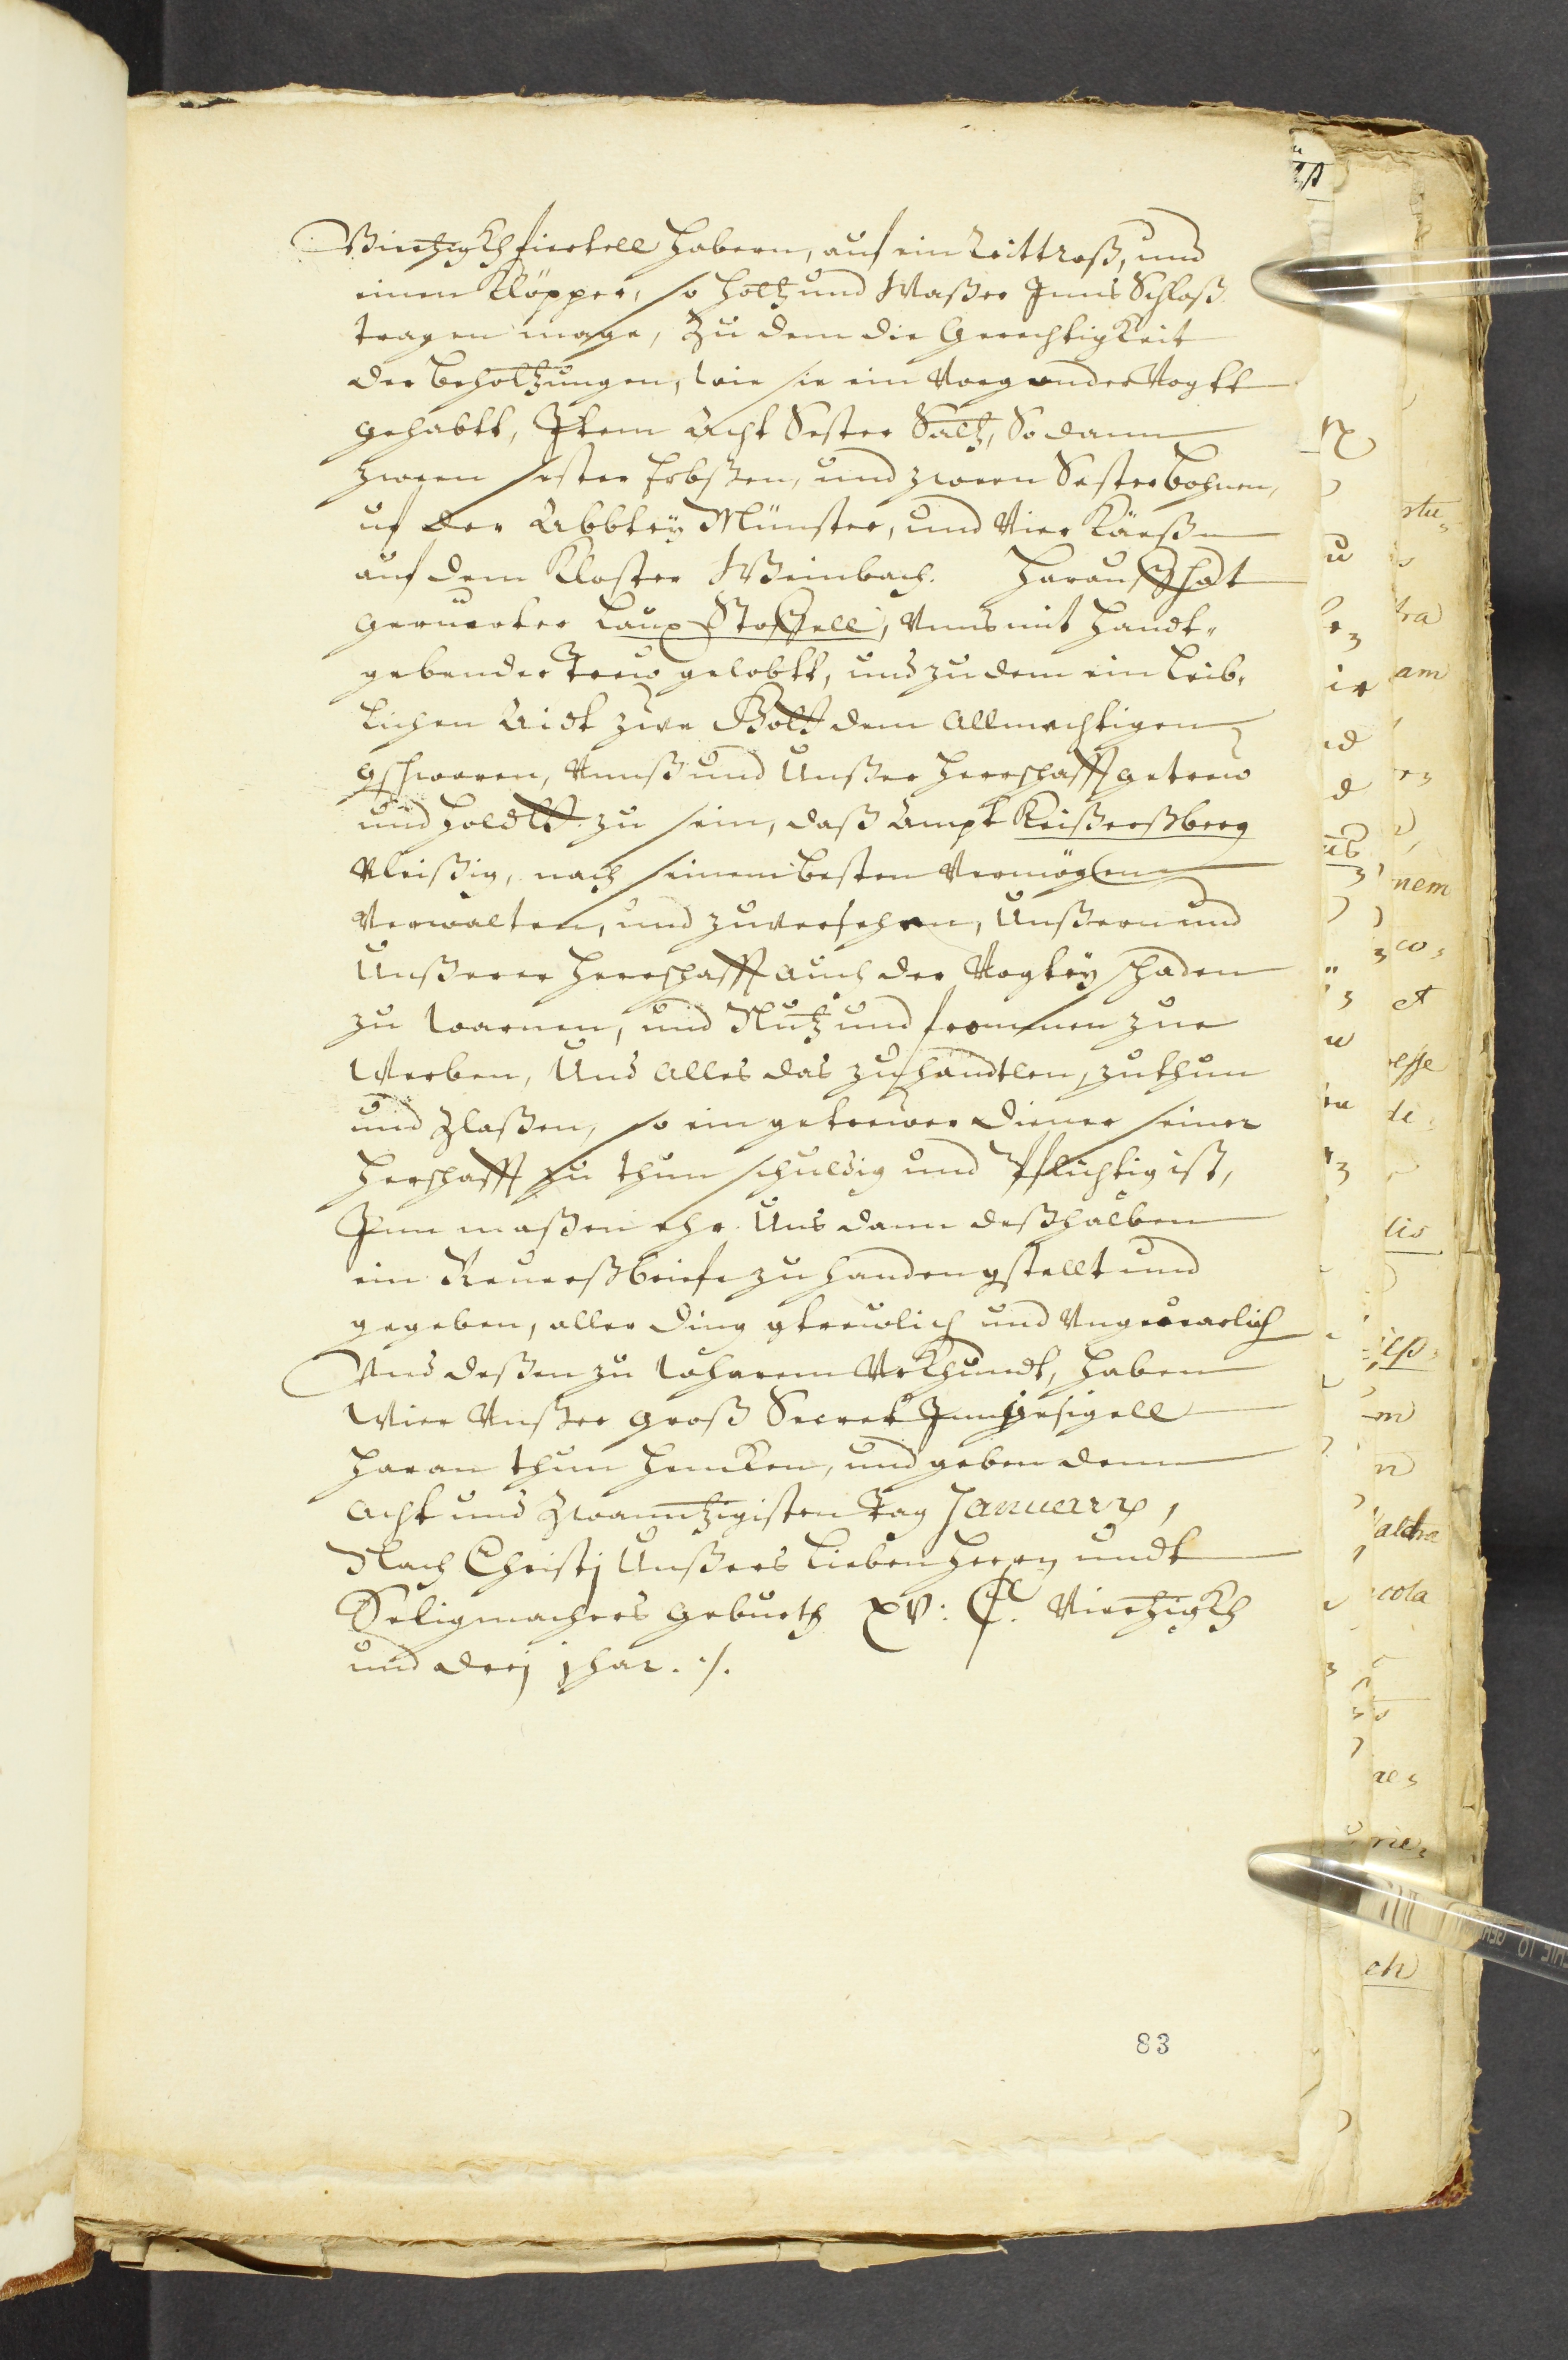 Viertzigkh fiertell Habern, auf ein Reittroß, und
einen Klöpper, so Holtz und Waßer Inns Schloß
tragen mage, Zu dem die Gerechtigkeit
der beholtzungen, wie sie ein Voegander Vogtt
gehabtt, Item Acht Sester Saltz, So dann
zween sester Erbßen, und zween Sester bohnen,
uf der Abbteÿ Münster, und Vier Käeße
auf dem Kloster Weinbach. Harauf hat
geruerter Laux Stoffell, Unns mit handt-
gebender Treuw gelobtt, und zu dem ein leib-
lichen Aidt zue Gott dem Allmechtigen
gschworen, Unnß und Unßer Herrschafft getrew
und holdtt zu sein, daß Ampt Keißerßberg
Vleißig, nach seinem besten Vermöglen
Verwalten, und zuversehen, Unßern und
Unßerer Herrschafft auch der Vogteÿ schaden
zu warnen, und Nutz und frommen zue
Werben, Und Alles das zu handtlen, zu thun
und Zlaßen, so ein getrewer Diener seiner
Herschafft zu thun schuldig und Pflichtig ist,
Inn maßen ehr Uns dann deßhalben
ein Reuerßbriefe zu handen gstellt und
gegeben, aller ding gtreuwlich und Ungeuearlich
Und deßen zu wharem Urkhundt, haben
Wier Unßer groß Secret Inngesigell
haran thun hencken, und geben dem
Acht und Zwanntzigisten Tag Januarÿ,
Nach Christj Unßers lieben Herrn undt
Seligmachers geburth XV: C. Viertzigkh
und dreÿ jhar. ./.
83